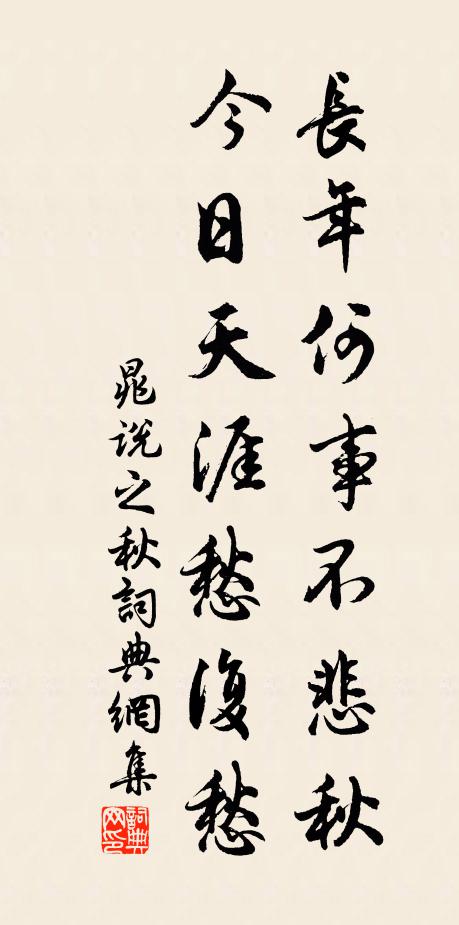 長年何事不悲秋
今日天涯愁復愁
晁說之秋詞典網集
詞典網印